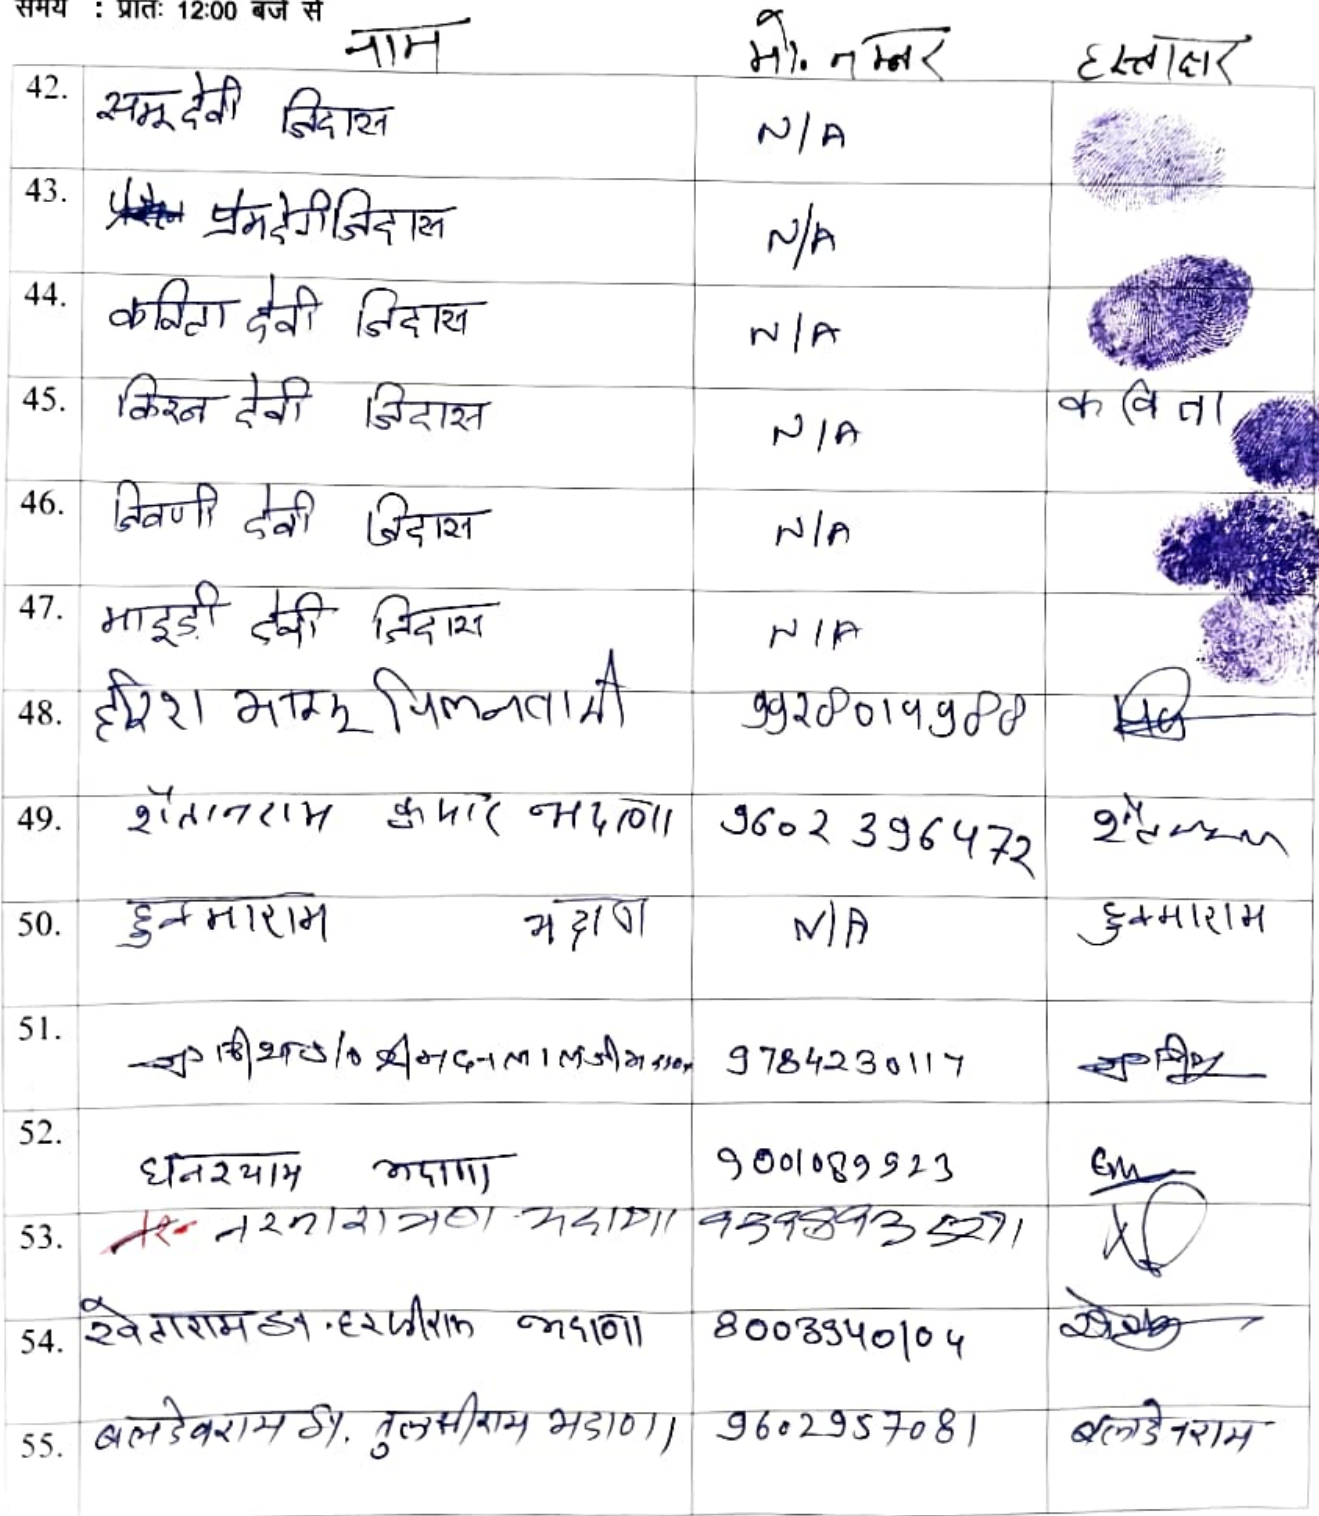 समय : प्रातः 12:00 बजे से
नाम मो. नम्बर हस्ताक्षर
42. समू देवी जिदास N/A
43. प्रेमदेवी जिदास N/A
44. कविता देवी जिदास N/A
45. किरन देवी जिदास N/A कविता
46. जिवणी देवी जिदास N/A
47. माइडी देवी जिदास N/A
48. हरिश 9928019988
49. शैतानराम कुमार भदाणा 9602396472
50. हुकमाराम भदाणा N/A हुकमाराम
51. श्री मदनलालजी 9784230117
52. घनश्याम भदाणा 9001089923
53. नरनारायण भदाणा
54. खेताराम भदाणा 8003940104
55. बलदेवराम तुलसीराम भडाणा 9602957081 बलदेवराम